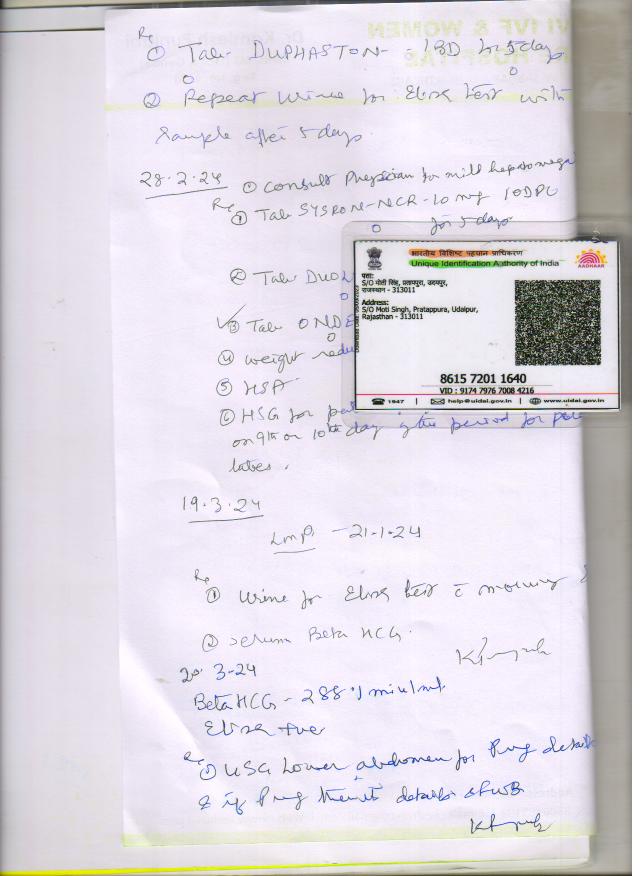 Rx
① Tab DUPHASTON - 1BD for 5 days
② Repeat Urine for Elisa test with
sample after 5 days.
28.2.24
① Consult Physician for mild hepatomega
Rx
① Tab SYSRON-NCR-10 mg 10DPC
for 5 days
② Tab DUO
③ Tab ONDE
④ weight redu
⑤ HSA
⑥ HSG for
on 9th or 10th day of the period for
tubes.
भारतीय विशिष्ट पहचान प्राधिकरण
Unique Identification Authority of India
AADHAAR
पता:
S/O मोती सिंह, प्रतापपुरा, उदयपुर,
राजस्थान - 313011
Address:
S/O Moti Singh, Pratappura, Udaipur,
Rajasthan - 313011
8615 7201 1640
VID : 9174 7976 7008 4216
1947 | help@uidai.gov.in | www.uidai.gov.in
19.3.24
LMP - 21.1.24
Rx
① Urine for Elisa test c morning
② Serum Beta HCG.
20.3-24
Beta HCG - 288.1 miu/ml.
Elisa +ve
Rx
① USG Lower abdomen for Preg details
& if Preg details of WB